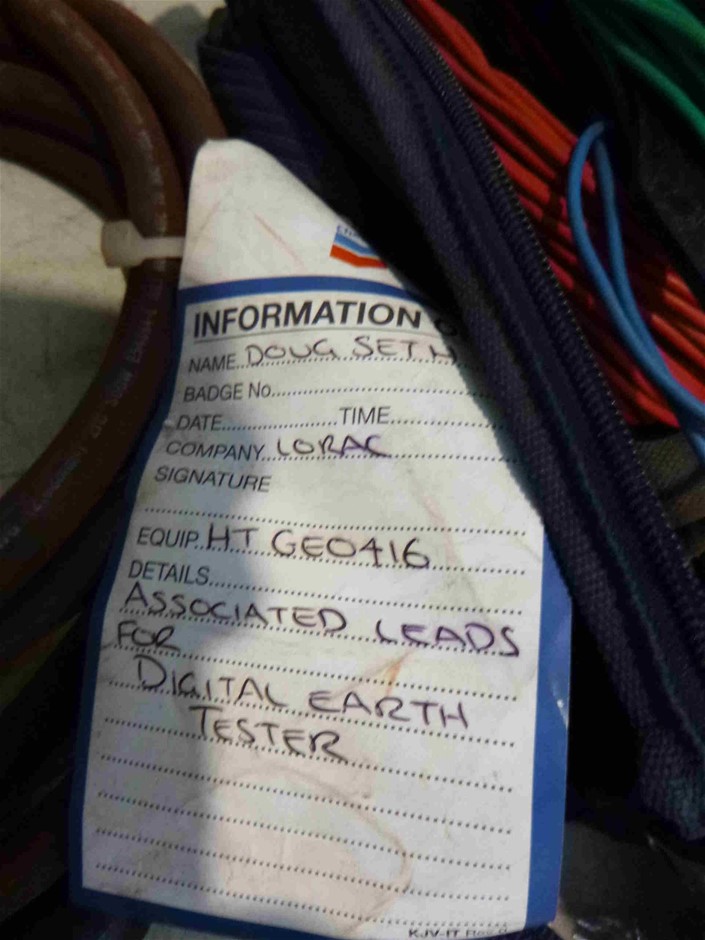 INFORMATION
NAME DOUG SETH
BADGE No.
DATE TIME
COMPANY LORAC
SIGNATURE
EQUIP. HT GEO416
DETAILS
ASSOCIATED LEADS
FOR
DIGITAL EARTH
TESTER
KJV-IT